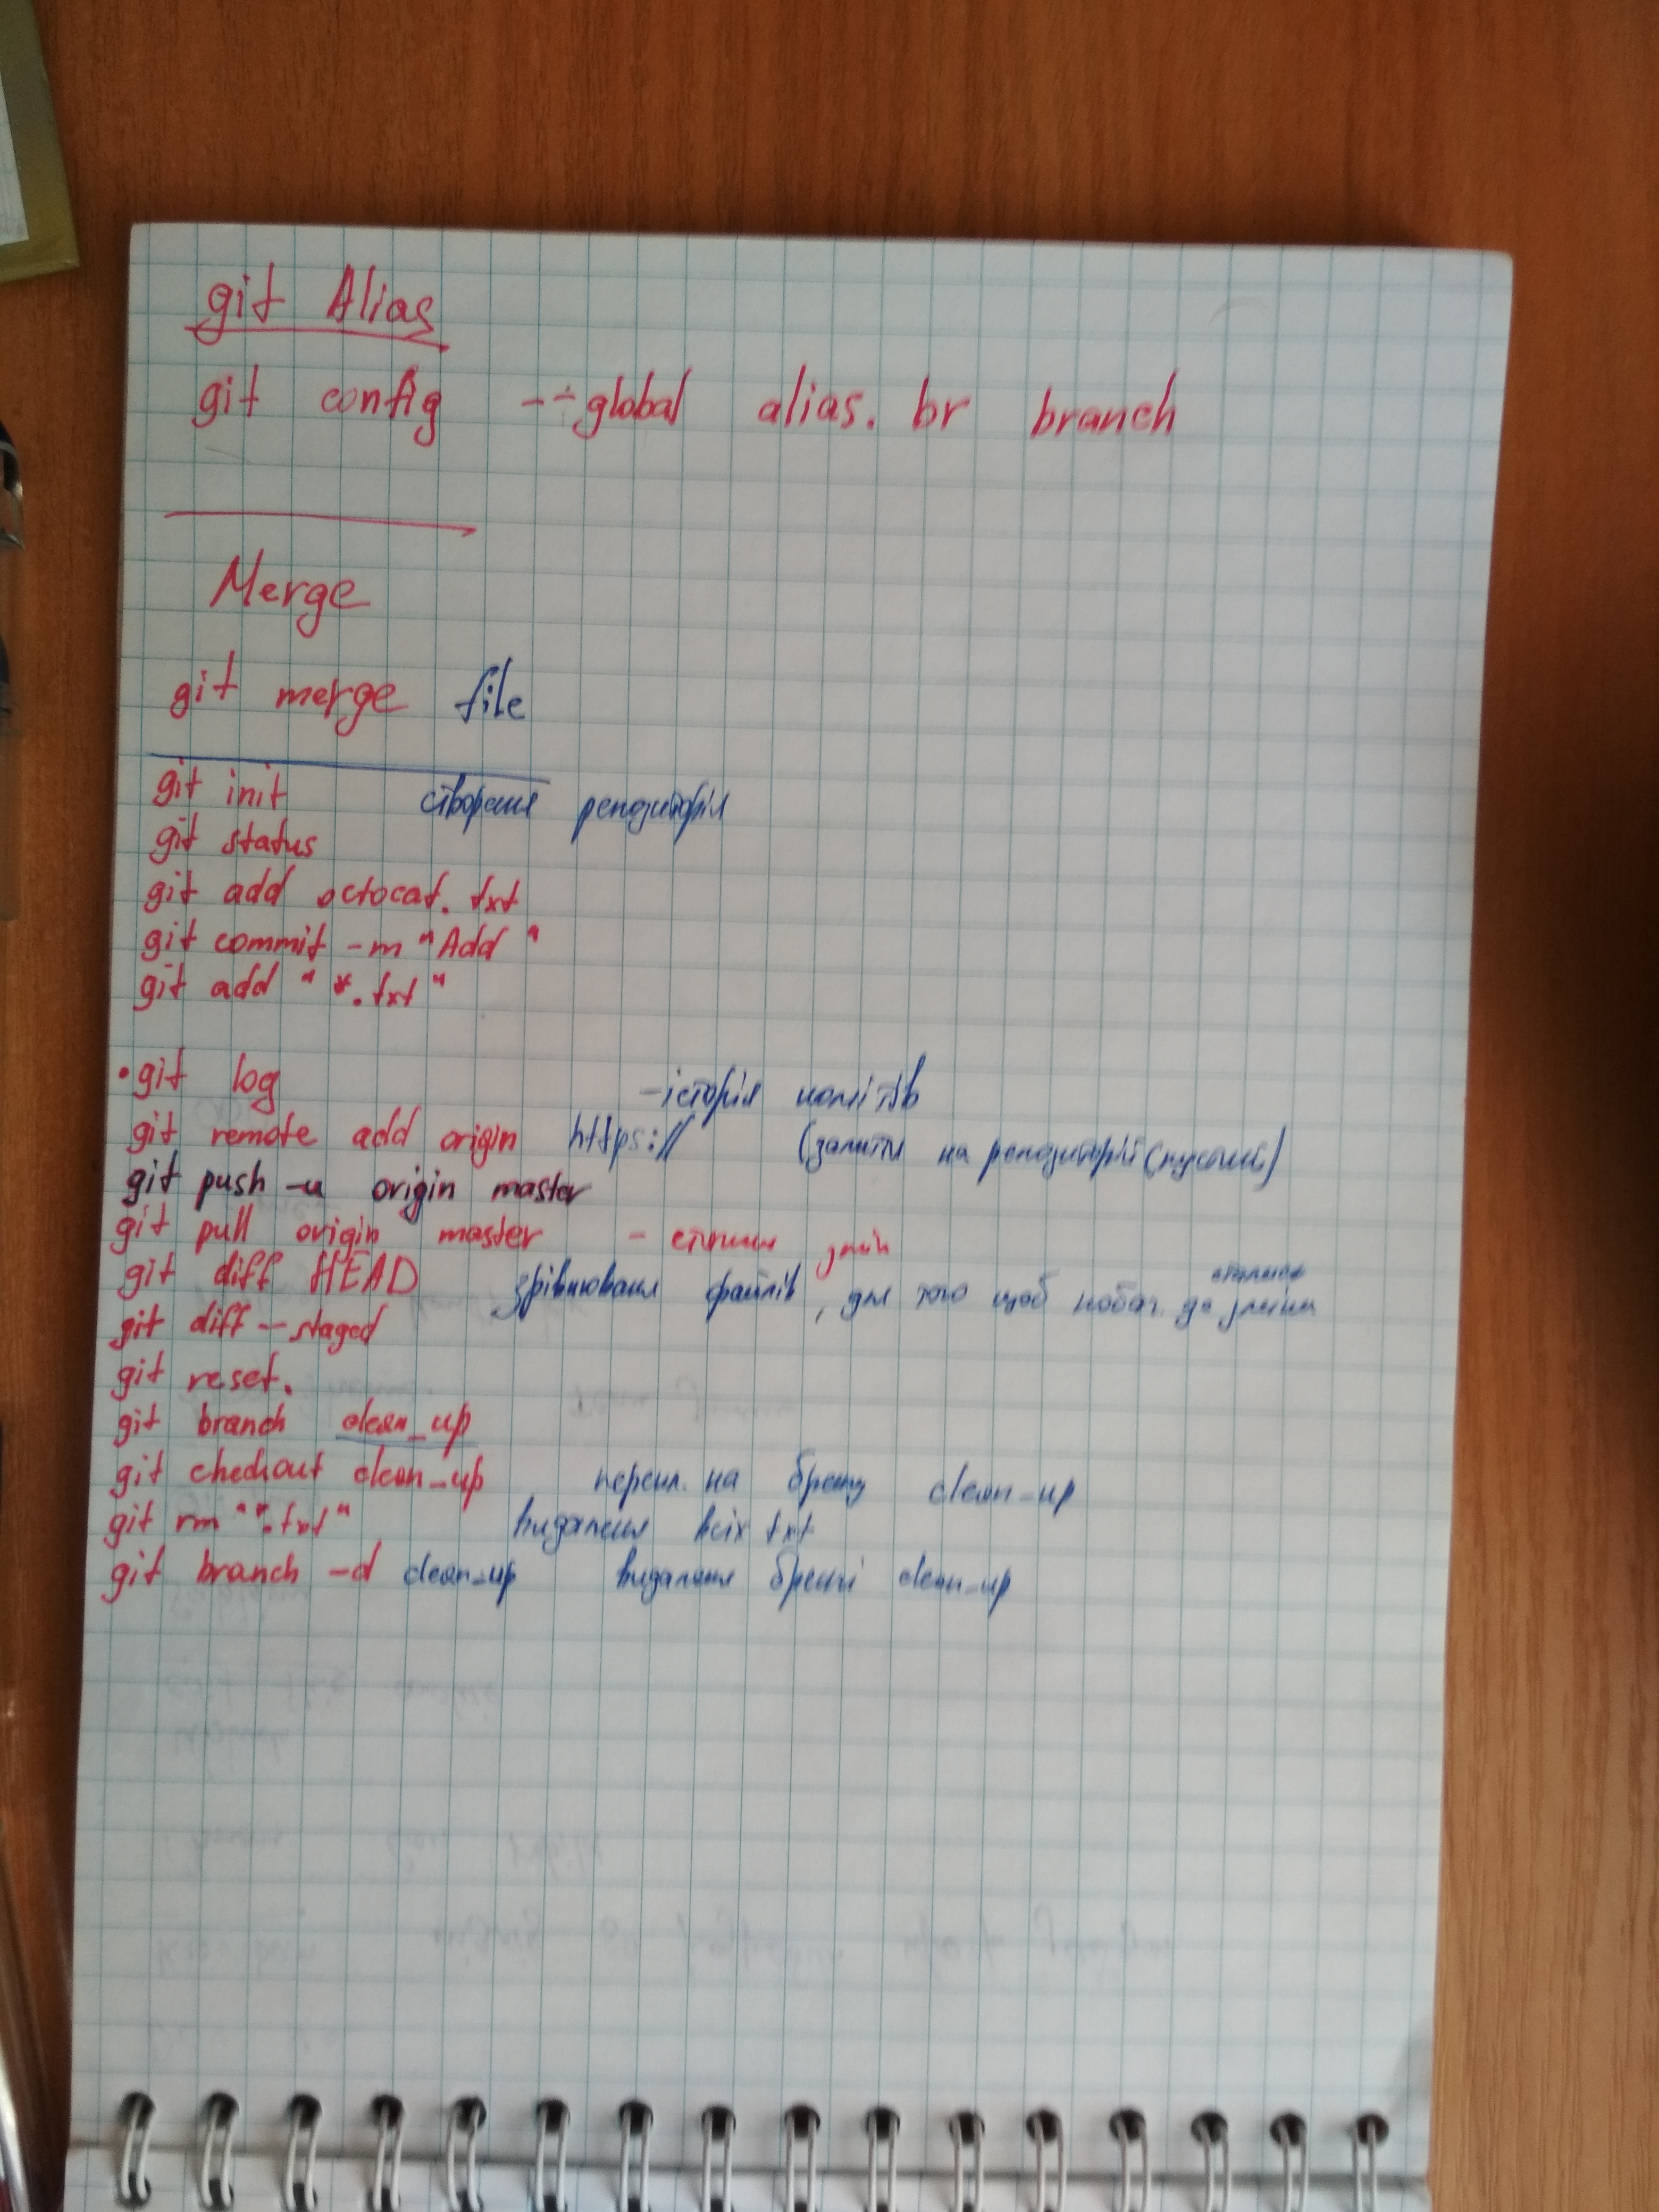 git Alias
git config --global alias. br branch
Merge
git merge file
git init створення репозиторія
git status
git add octocat.txt
git commit -m "Add "
git add "*.txt"
• git log - історія комітів
git remote add origin https:// (залити на репозиторій (пустий)
git push -u origin master
git pull origin master - змін
git diff HEAD зрівнювання файлів, для того щоб побач. де зміни
git diff --staged
git reset.
git branch clean_up
git checkout clean_up перекл. на бренч clean_up
git rm "*.txt" видалення всіх txt
git branch -d clean_up видалення бренчі clean_up